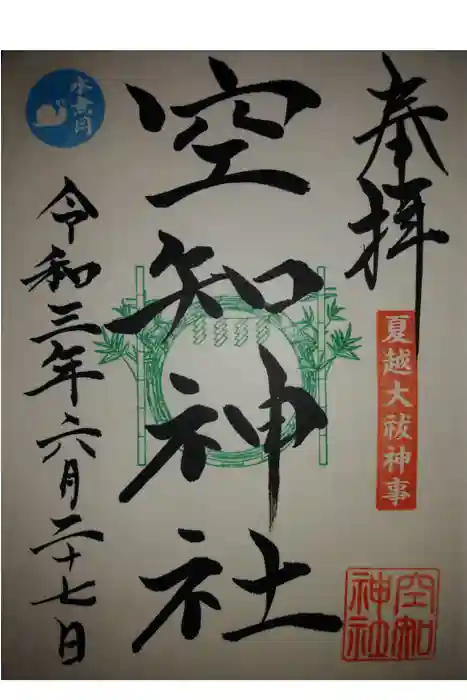 奉拝
夏越大祓神事
空知神社
空知
神社
水無月
令和三年六月二十七日